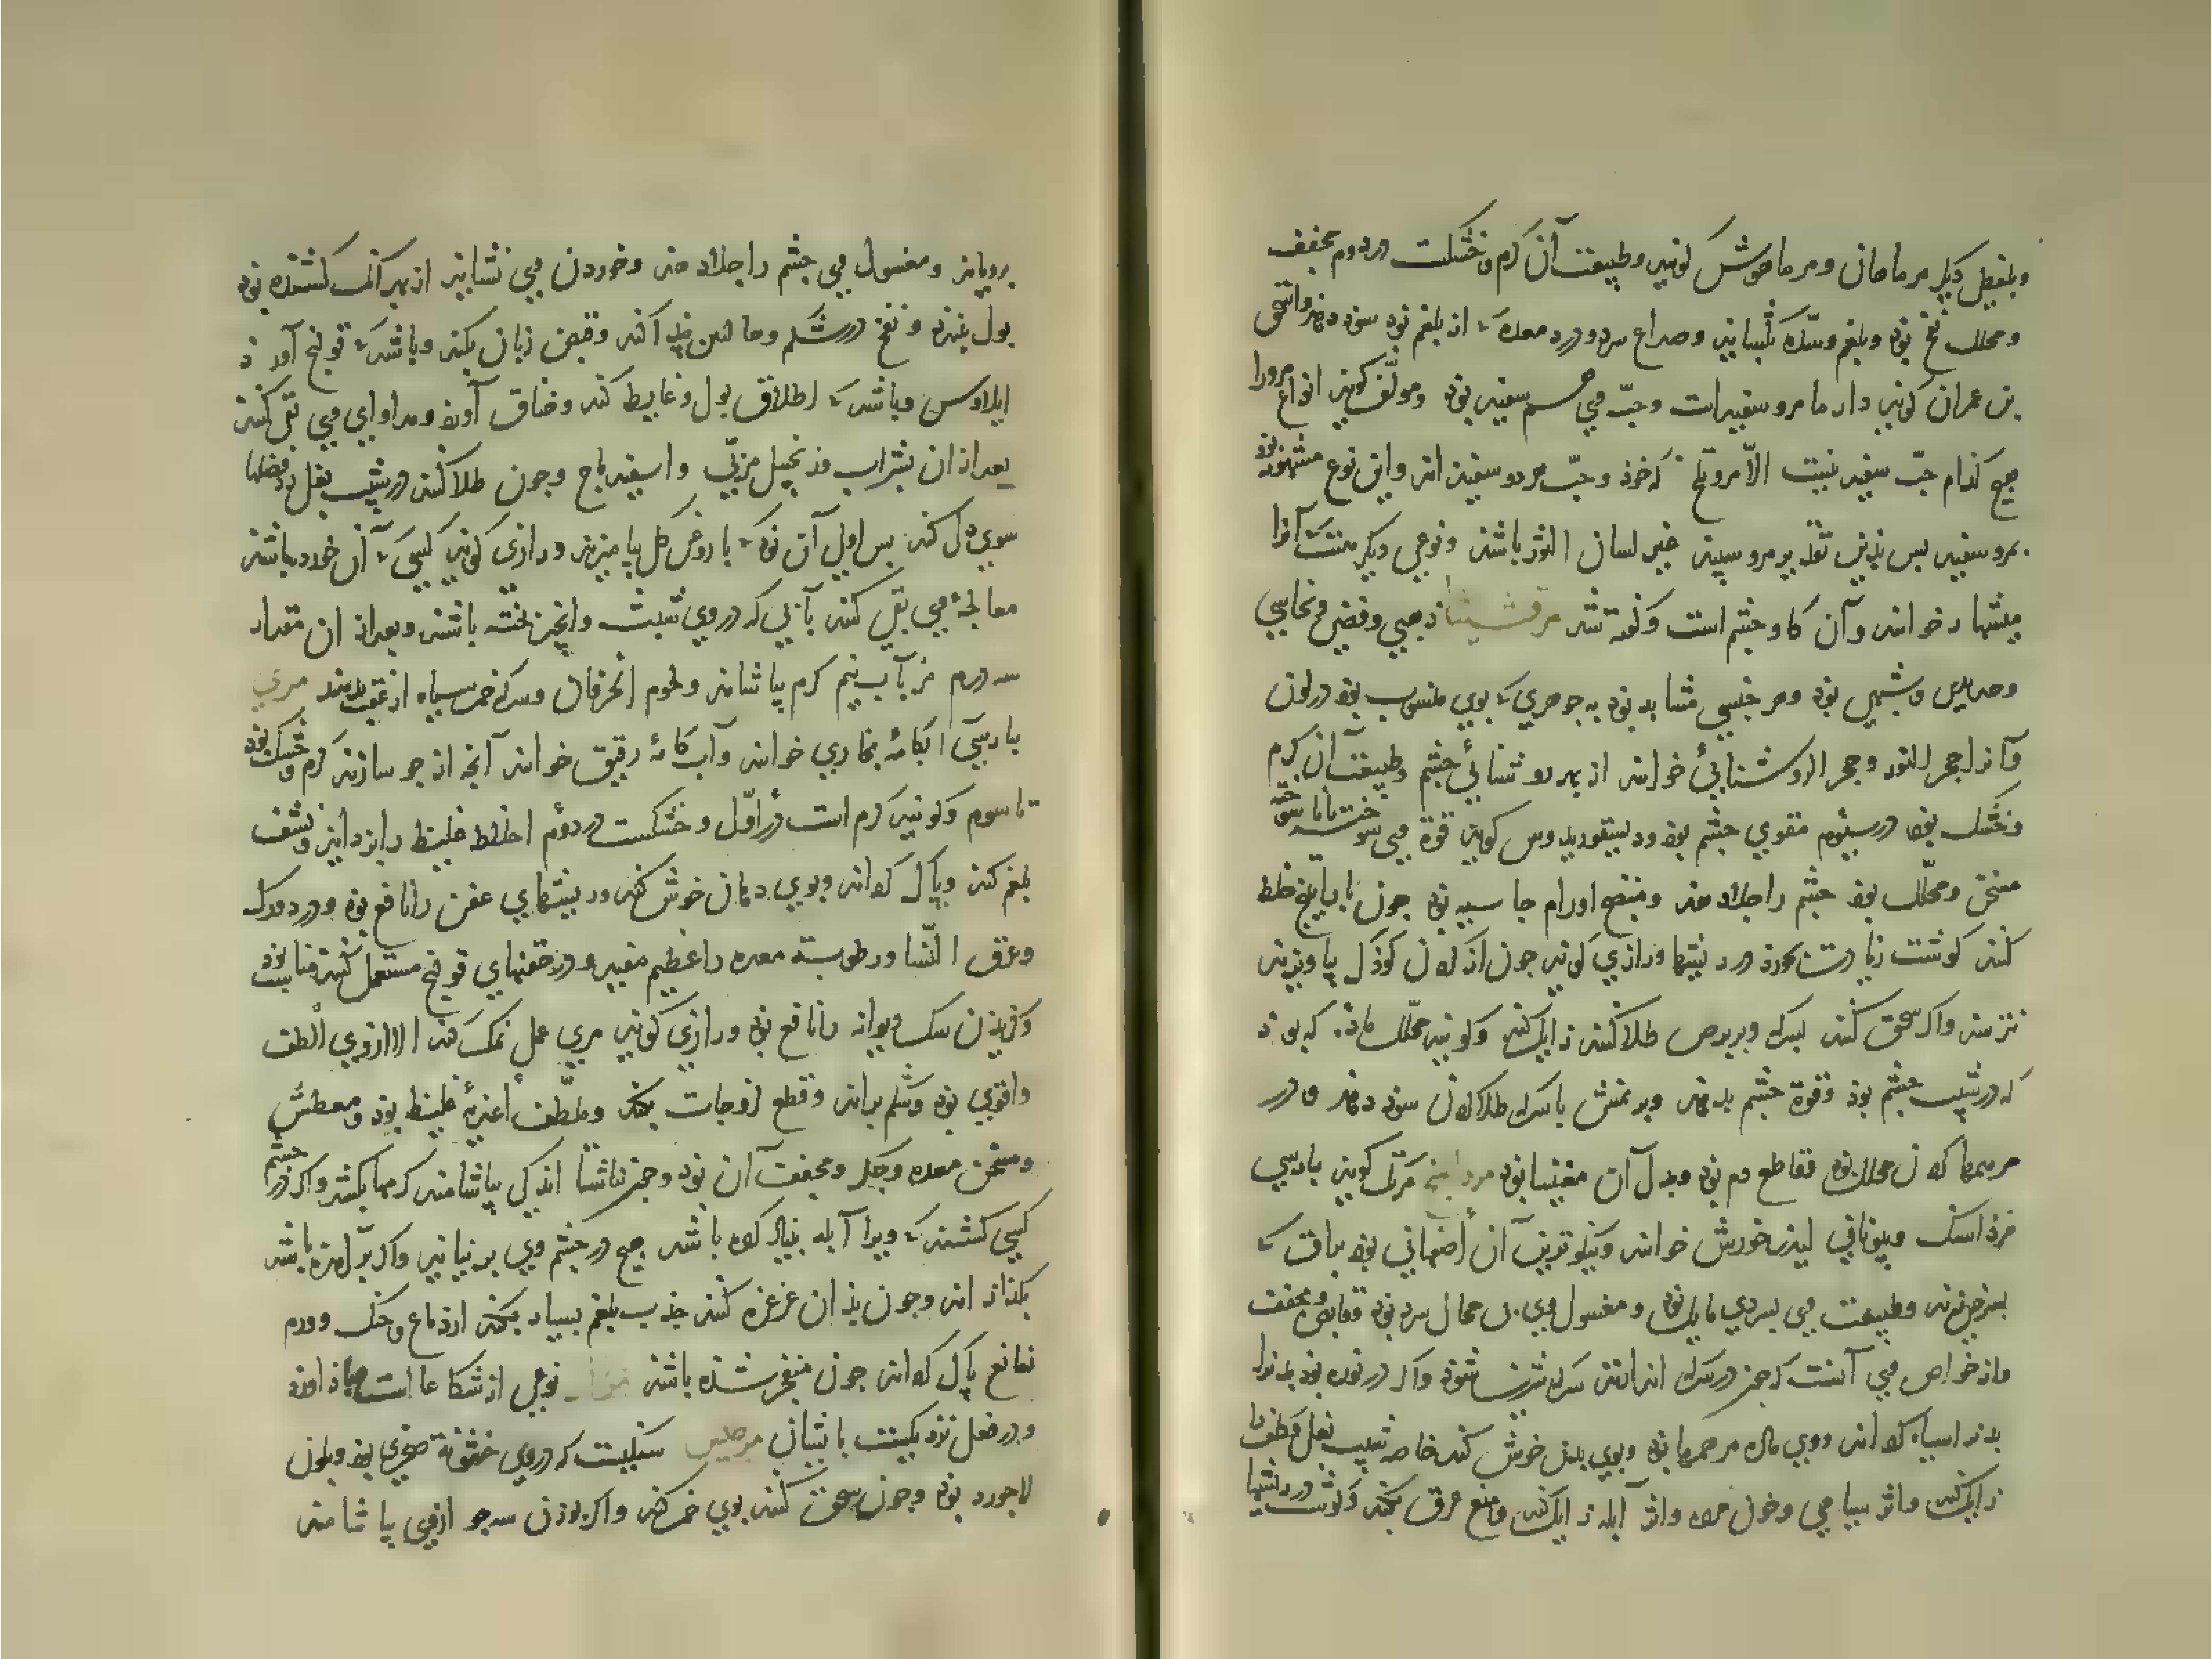 و بلفظی دیکر مرماهان و مرماحوش کویند و طبیعت آن کرم و خشکست در دوم مجفف
و محلل نفخ بوذ و بلغم و سدّه بکشاید و صداع سرد و درد معده کی از بلغم بوذ سوذ دهد و اسحق
بن عمران کویند دارما مرو سفید است و حبّ وی هم سفید بوذ و مولّف کوید انواع مرو را
هیچ کدام حبّ سفید نیست الاّ مرو تلخ کی خوذ و حبّ هر دو سفیدند و این نوع مشهور بوذ
بمرو سفید بس بذین تقدیر مرو سپید غیر لسان الثور باشد و نوعی دیکر هست کی آنرا
میشبهار خوانند و آن کاوچشم است و کفته شد مرقشیثا ذهبی و فضی و نحاسی
و حدیدی و شبهی بوذ و هر جنسی مشابه بوذ به جوهری کی بوی منسوب بوذ در لون
و آنرا حجر النور و حجر الروشنائی خوانند از بهر روشنائی چشم و طبیعت آن کرم
و خشک بوذ در سیوم مقوی چشم بوذ و دیسقوریدوس کوید قوة وی سوخته و ناسوخته
مسخن و محلّل بوذ چشم را جلا دهد و منضج اورام جاسیه بوذ جون با راتینج خلط
کنند کوشت زیادت بخورد در ریشها و رازی کوید جون از کردن کوذک بیاویزند
نترسد و اکر سحق کنند بسرکه و بر برص طلا کنند زایل کند و کویند محلّل مادّه کی بوذ
کی در شیب چشم بوذ و قوة چشم بدهد و بر نمش با سرکه طلا کردن سوذ دهد و در
مرهمها کردن محلل بوذ و قاطع دم بوذ و بدل آن مغنیسا بوذ مرداسنج مرتک کویند بارسی
مرداسنک و بیونانی لیذرخورش خوانند و نیکوترین آن اصفهانی بوذ براق کی
بسرخی زند و طبیعت وی بسردی مایل بوذ و مغسول وی بی محال سرد بوذ و قابض و مجفف
و از خواص وی آنست کی جون در سرکه اندازند سرکه شیرین شوذ و اکر در نوره بوذ بدن را
بدن سیاه کرداند و وی ماده مرهمها بوذ و بوی بدن خوش کند خاصه شیب بغل و کلف را
زایل کند و اثر سیاهی و خون مرده و اثر آبله زایل کند و منع عرق بکند و کوشت در ریشها
برویاند و مغسول وی چشم را جلا دهد و خوردن وی نشاید از بهر آنک کشنده بوذ
بول ببندد و نفخ در شکم و حالبین پیدا کند و قبض زبان بکند و باشد کی قولنج آورد و
ایلاوس و باشد کی اطلاق بول و غایط کند و خناق آورد و مداوای وی بقی کنند
بعد از آن بشراب و زنجبیل مربّی و اسفیدباج و جون طلا کنند در شیب بغل رد فضلها
بسوی دل کند بس اولی آن بوذ کی با روغن کل بیامیزند و رازی کوید کسی کی آن خورده باشد
معالجهٔ وی بقی کنند بآبی که در وی شبت و انجیر بخته باشند و بعد از آن مقدار
سه درم مر بآب نیم کرم بیاشامند و لحوم الخرفان و سرکه خمر سیاه از عقب بدهند مری
بارسی آبکامهٔ بخاری خوانند و آب کامهٔ رقیق خوانند آنجه از جو سازند کرم و خشک بوذ
تا سوم و کویند کرم است در اوّل و خشکست در دوم اخلاط غلیظ را بزداید و نشف
بلغم کند و پاک کرداند و بوی دهان خوش کند و ریشهای عفن را نافع بوذ و درد ورک
و عرق النّسا و رطوبت معده را عظیم مفید و در حقنهای قولنج مستعمل کنند مناسب بوذ
و کزیذن سک دیوانه را نافع بوذ و رازی کوید مری عمل نمک کند الا از وی الطف
و اقوی بوذ و شکم براند و قطع لزوجات بکند و ملطّف اغذیهٔ غلیظ بوذ و معطش
و مسخن معده و جکر و مجفف آن بوذ و جون ناشتا اندکی بیاشامند کرمها بکشد و اکر در چشم
کسی کشند کی ویرا آبله بنیاد کرده باشد هیچ در چشم وی بر نیاید و اکر بر آمده باشد
بکذازاند و جون بذان غرغره کنند جذب بلغم بسیار بکند از دماغ و حنک و ورم
نغانغ پاک کرداند جون منفجر شده باشد نوعی از شکاعا است
و در فعل نزدیکست با بیشان مرطیس سنکیست که در وی خشونة صخری بوذ و بلون
لاجورد بوذ و جون سحق کنند بوی خمر کند و اکر بوزن سه جو از وی بیاشامند